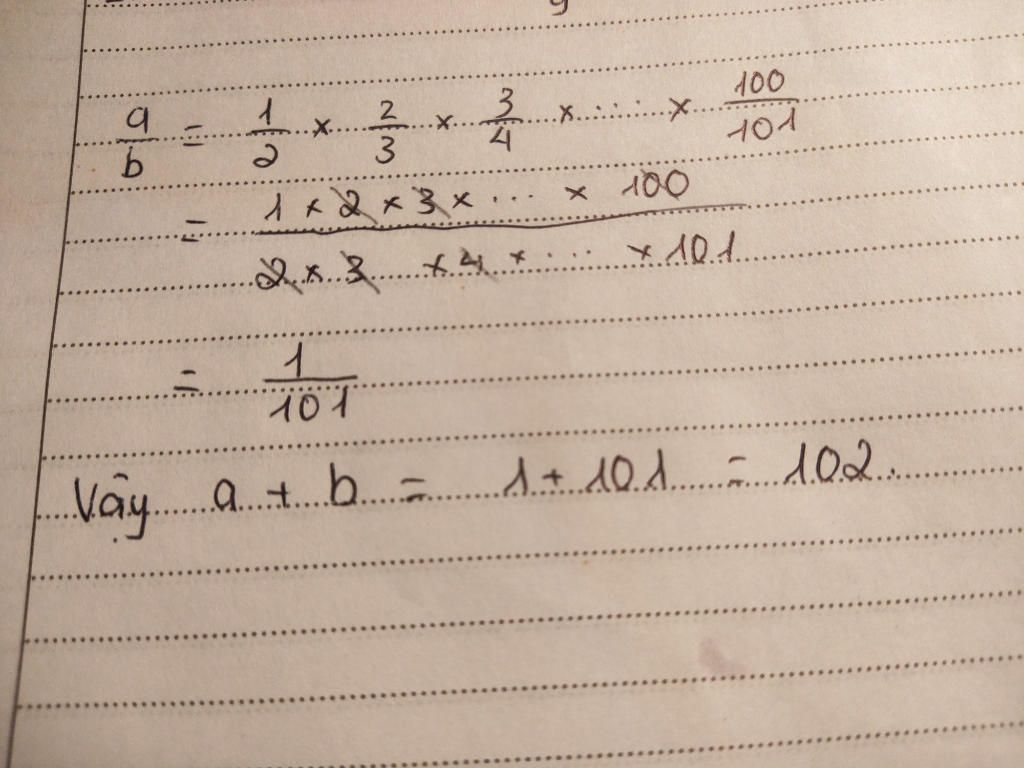 a/b = 1/2 × 2/3 × 3/4 × ..... × 100/101
= 1 × 2 × 3 × ... × 100 / 2 × 3 × 4 × ... × 101
= 1/101
Vậy a + b = 1 + 101 = 102.